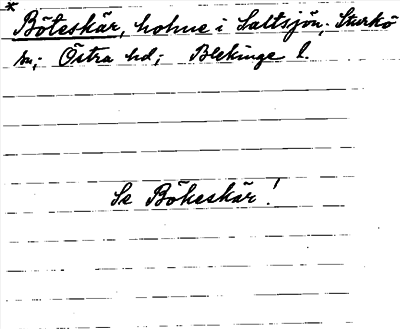 * Böteskär, holme i Saltsjön; Sturkö
sn; Östra hd; Blekinge l.
Se Bökeskär!